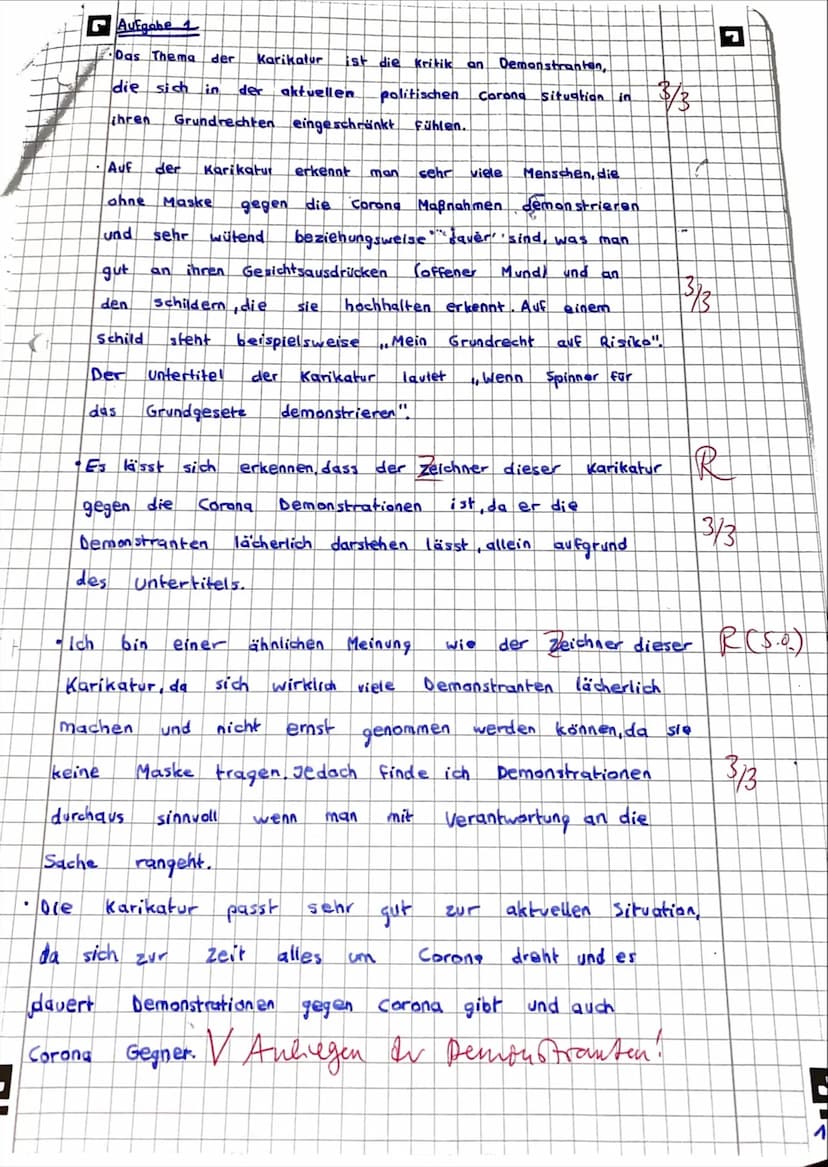 Aufgabe 1
· Das Thema der Karikatur ist die Kritik an Demonstranten,
die sich in der aktuellen politischen Corona Situation in 3/3
ihren Grundrechten eingeschränkt fühlen.
· Auf der Karikatur erkennt man sehr viele Menschen, die
ohne Maske gegen die Corona Maßnahmen demonstrieren
und sehr wütend beziehungsweise "sauer" sind, was man
gut an ihren Gesichtsausdrücken (offener Mund) und an
den Schildern, die sie hochhalten erkennt. Auf einem 3/3
Schild steht beispielsweise „Mein Grundrecht auf Risiko".
Der Untertitel der Karikatur lautet „Wenn Spinner für
das Grundgesetz demonstrieren".
· Es lässt sich erkennen, dass der Zeichner dieser Karikatur R
gegen die Corona Demonstrationen ist, da er die
Demonstranten lächerlich darstehen lässt, allein aufgrund 3/3
des Untertitels.
· Ich bin einer ähnlichen Meinung wie der Zeichner dieser R (s.o.)
Karikatur, da sich wirklich viele Demonstranten lächerlich
machen und nicht ernst genommen werden können, da sie
keine Maske tragen. Jedoch finde ich Demonstrationen 3/3
durchaus sinnvoll wenn man mit Verantwortung an die
Sache rangeht.
· Die Karikatur passt sehr gut zur aktuellen Situation,
da sich zur Zeit alles um Corona dreht und es
dauert Demonstrationen gegen Corona gibt und auch
Corona Gegner. V Anliegen der Demonstranten!
1